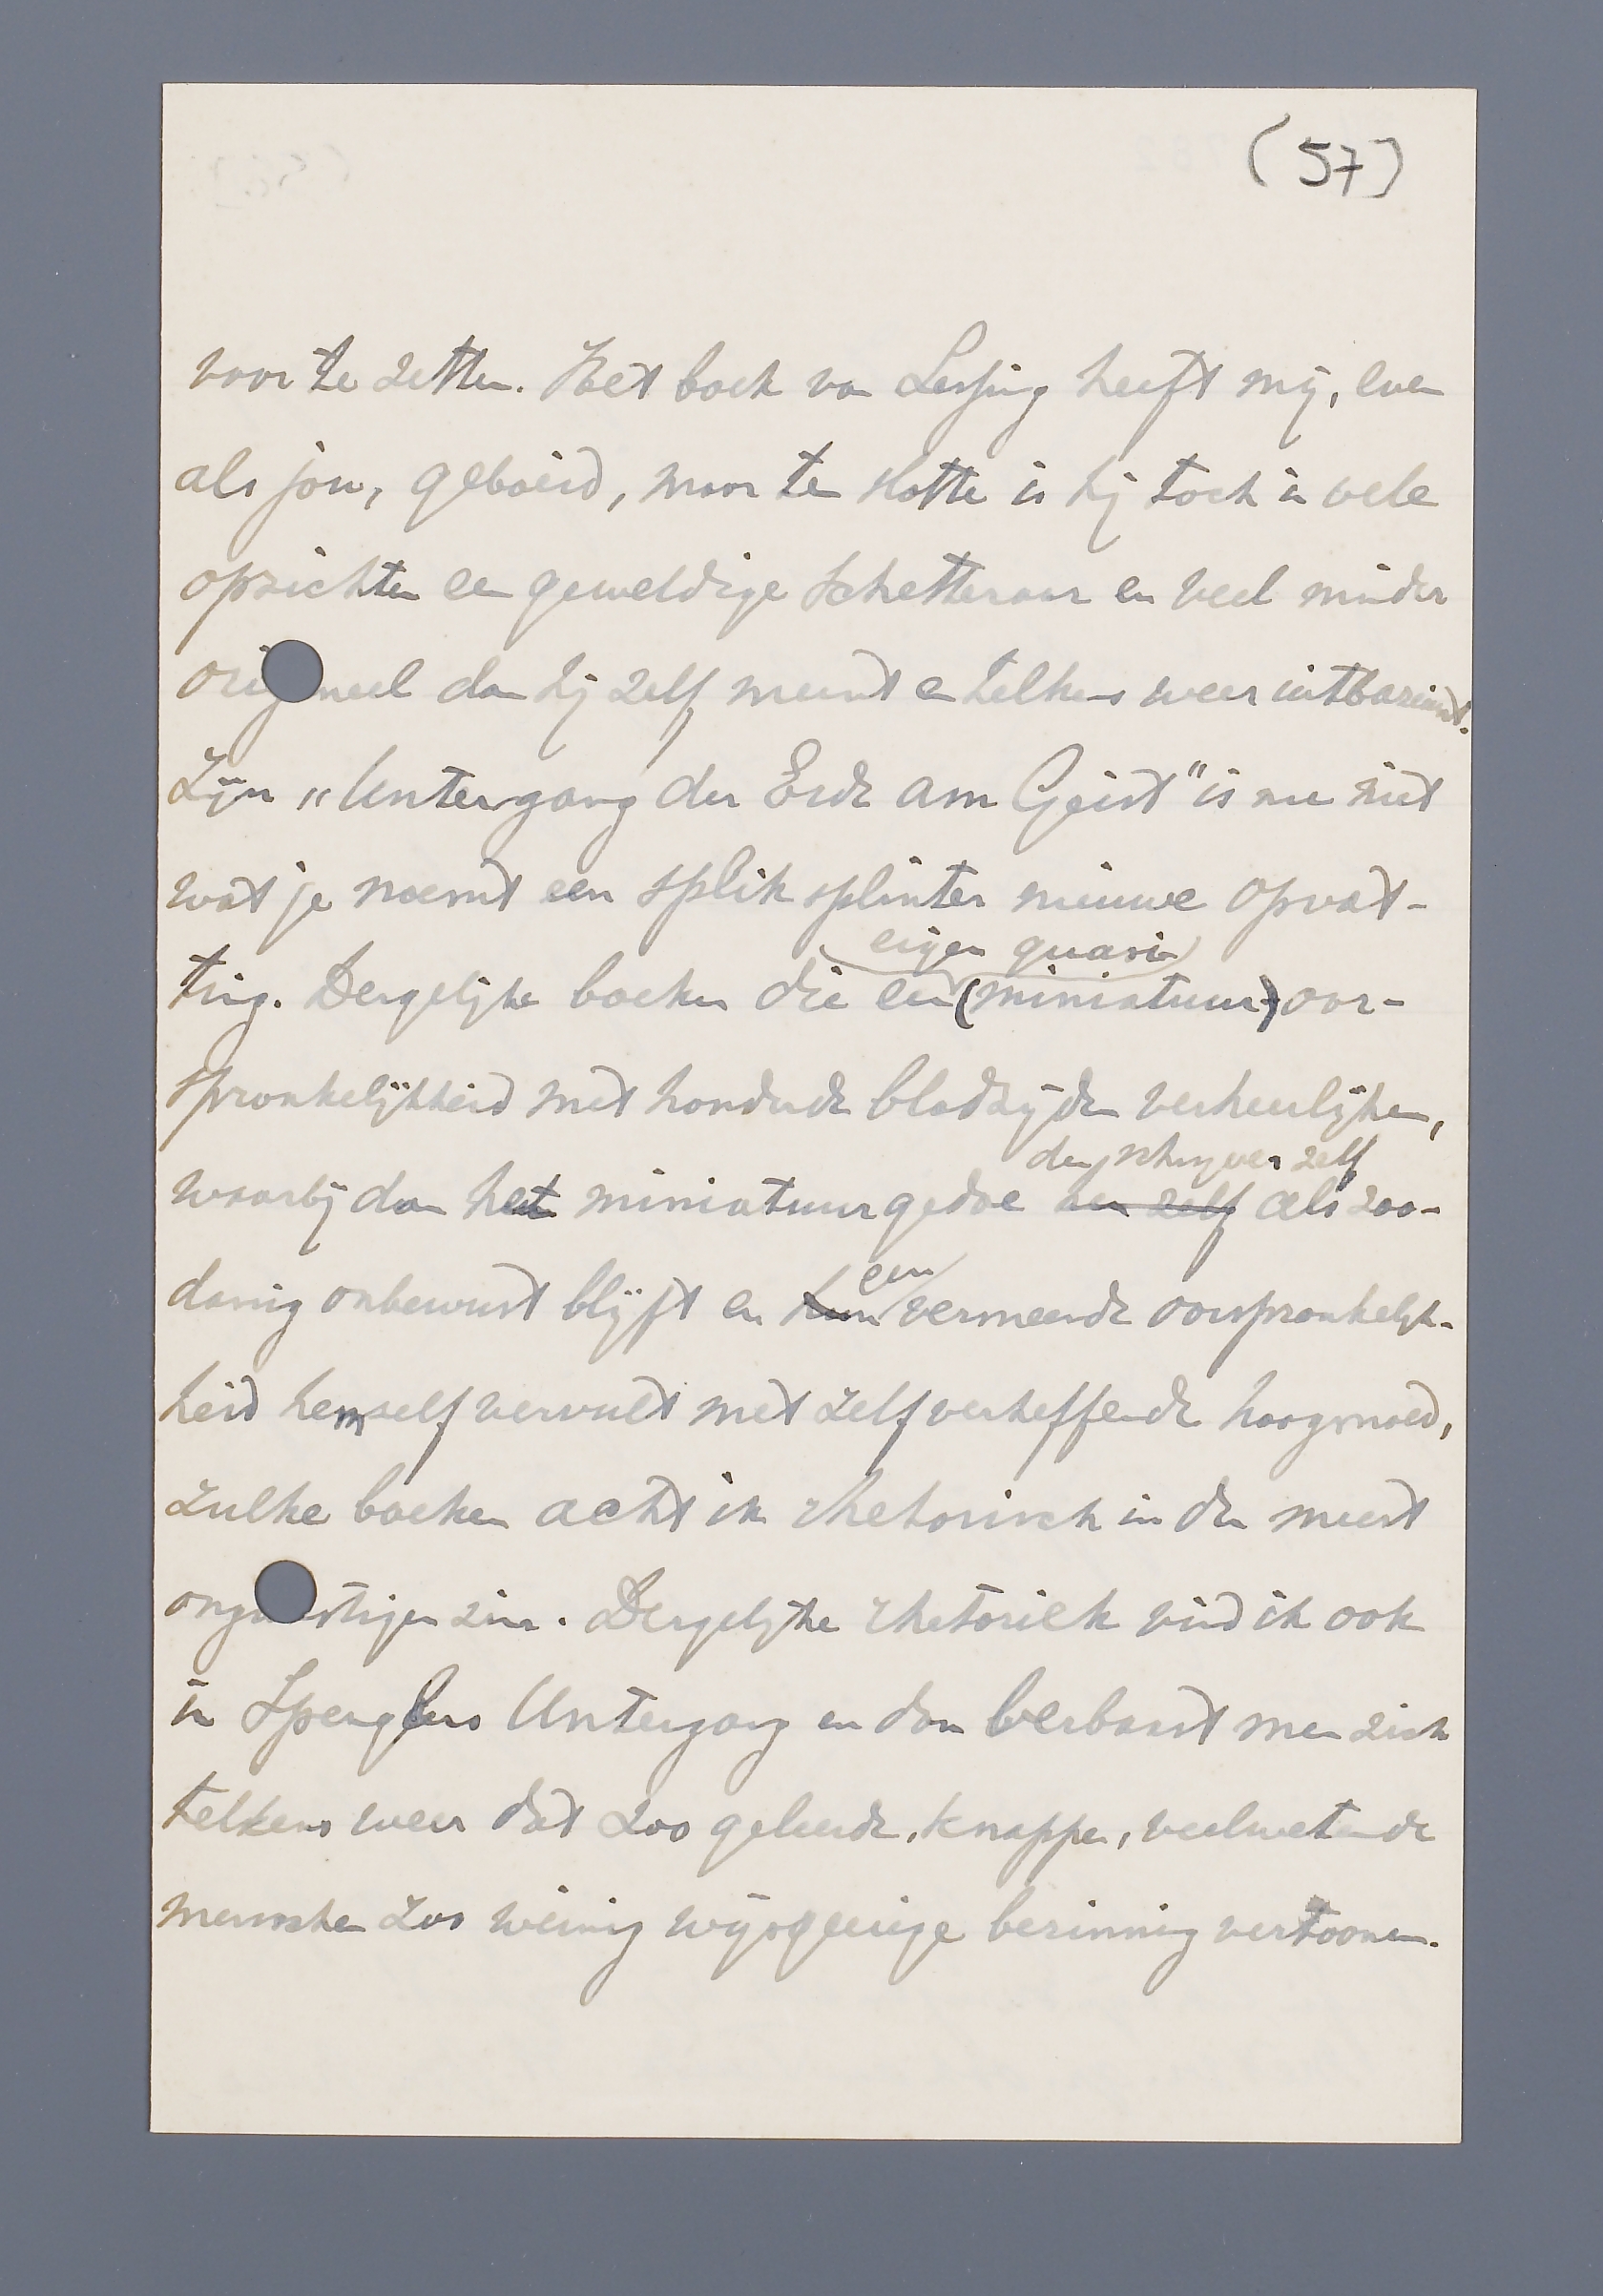 (57)
voor te zetten. Het boek van Lessing heeft mij, even
als jou, geboeid, maar ten slotte is hij toch in vele
opzichten een geweldige schetteraar en veel minder
origineel dan hij zelf meent en telkens weer uitbazuint.
Zijn „Untergang der Erde am Geist" is nu niet
wat je noemt een splik splinter nieuwe opvat-
eigen quasi
ting. Dergelijke boeken die een (miniatuur) oor-
spronkelijkheid met honderde bladzijden verheerlijken,
den schrijver zelf
waarbij dan het miniatuurgedoe hen zelf als zoo-
een
danig onbewust blijft en hun vermeende oorspronkelijk-
heid hemzelf vervult met zelfverheffende hoogmoed,
zulke boeken acht ik rhetorisch in den meest
ongunstigen zin. Dergelijke rhetoriek vind ik ook
in Spenglers Untergang en dan verbaast men zich
telkens weer dat zoo geleerde, knappe, veelwetende
menschen zoo weinig wijsgeerige bezinning vertoonen.